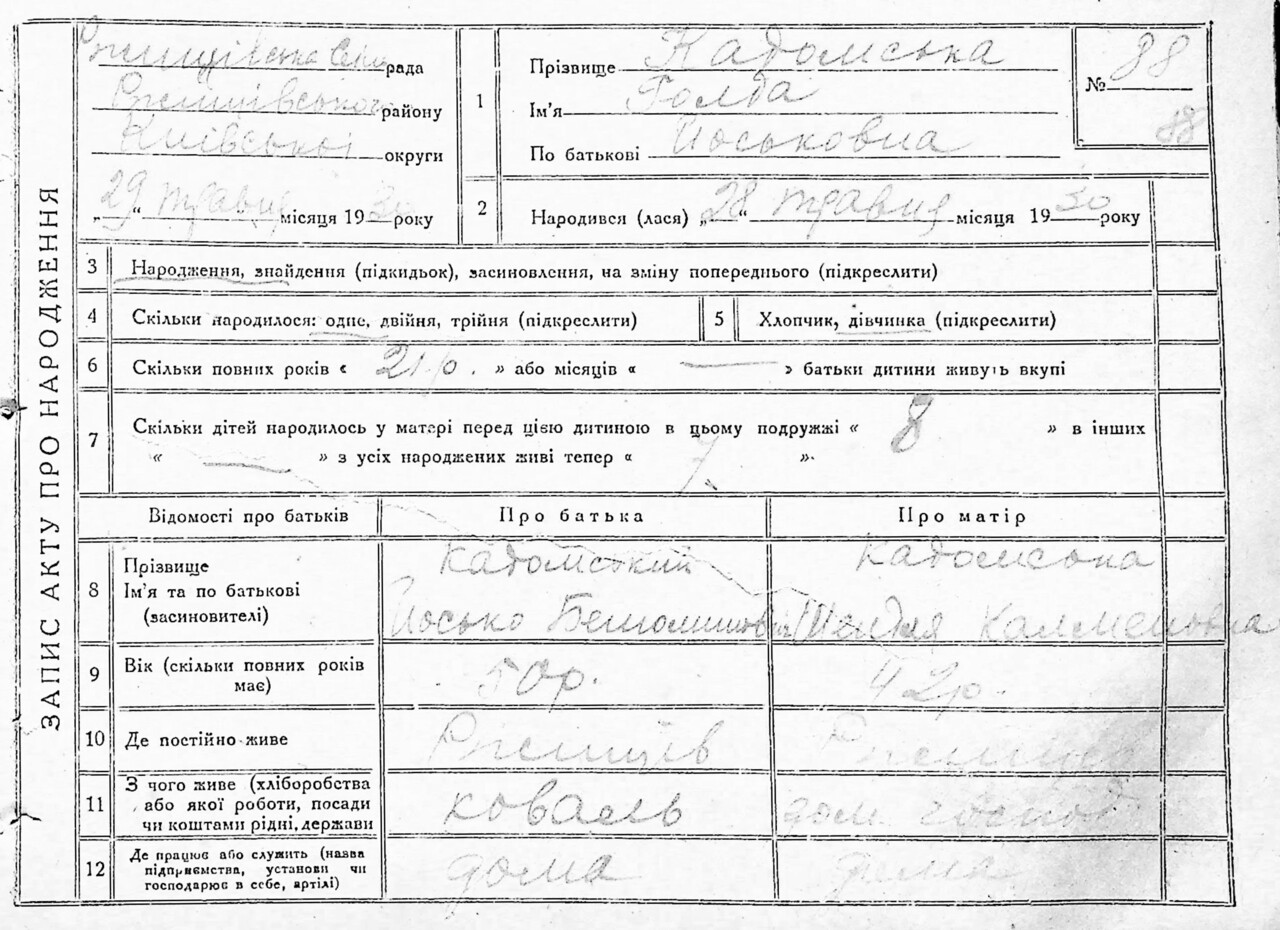 ЗАПИС АКТУ ПРО НАРОДЖЕННЯ
Ржищівська Сел. рада
Ржищівського району
Київської округи
„29“ травня місяця 1930 року
1 Прізвище Кадомська
Ім'я Голда
По батькові Йоськовна
№ 88
88
2 Народився (лася) „28“ травня місяця 1930 року
3 Народження, знайдення (підкидьок), засиновлення, на зміну попереднього (підкреслити)
4 Скільки народилося: одне, двійня, трійня (підкреслити)
5 Хлопчик, дівчинка (підкреслити)
6 Скільки повних років « 21 р. » або місяців « — » батьки дитини живуть вкупі
7 Скільки дітей народилось у матері перед цією дитиною в цьому подружжі « 8 » в інших
« — » з усіх народжених живі тепер « 7 ».
Відомості про батьків Про батька Про матір
8 Прізвище
Ім'я та по батькові
(засиновителі)
Кадомський
Йосько
Кадомська
Калменовна
9 Вік (скільки повних років
має)
50 р.
42 р.
10 Де постійно живе Ржищів Ржищев
11 З чого живе (хліборобства
або якої роботи, посади
чи коштами рідні, держави
коваль
дом. господ
12 Де працює або служить (назва
підприємства, установи чи
господарює в себе, артілі)
дома
дома